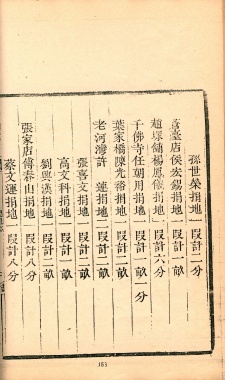 孫世榮捐地一段計二畝
臺店侯宏錫捐地一段計一畝
趙塚舖楊鳳儀捐地一段計六分
千佛寺任朝用捐地一段計一畝一分
葉家橋陳光裕捐地一段計二畝
老河灣許 蓮捐地一段計二畝
張喜文捐地一段計一畝
高文科捐地一段計一畝
劉興漢捐地一段計二畝
張家店傅泰山捐地一段計八分
蔡文運捐地一段計八分